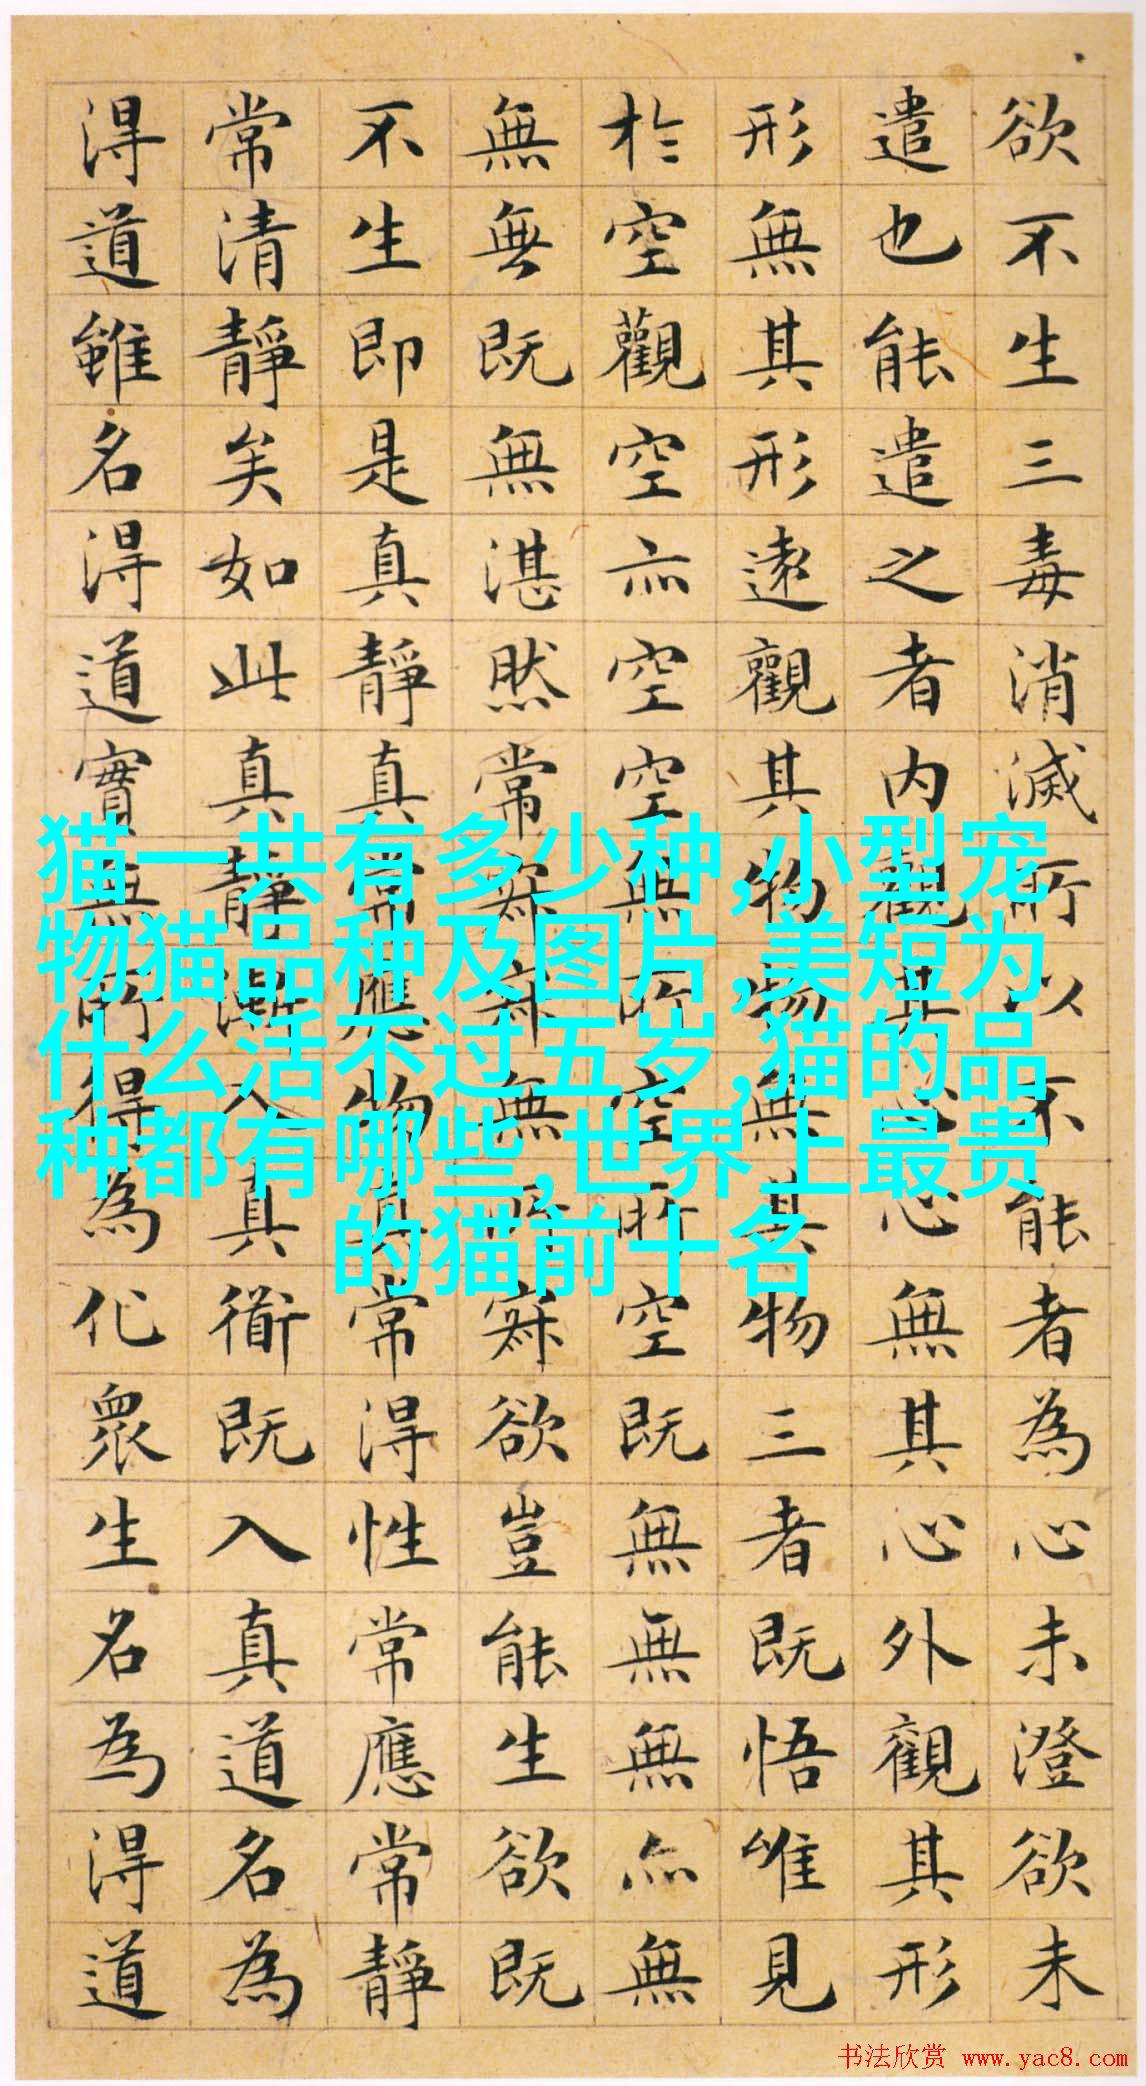 欲不生三毒消滅所以不能者為心未澄欲未
遣也能遣之者内觀其心心無其心外觀其形
形無其形遠觀其物物無其物三者既悟唯見
於空觀空亦空空無所空所空既無無無亦無
無無既無湛然常寂寂無所寂欲豈能生欲既
不生即是真靜真常應物真常得性常應常靜
常清靜矣如此真靜漸入真衜既入真道名為
得道雖名得道實無所得為化眾生名為得道
猫一共有多少种,小型宠
物猫品种及图片,美短为
什么活不过五岁,猫的品
种都有哪些,世界上最贵
的猫前十名
书法欣赏 www.yac8.com